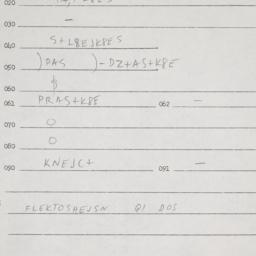 020
030 -
040 S+LBEJKBES
050 )PAS )-DZ+AS+KBE
060
061 PRAS+KBE 062 -
070 O
080 O
090 KNEJC+ 091 -
FLEKTOSHEJSN QI DOS